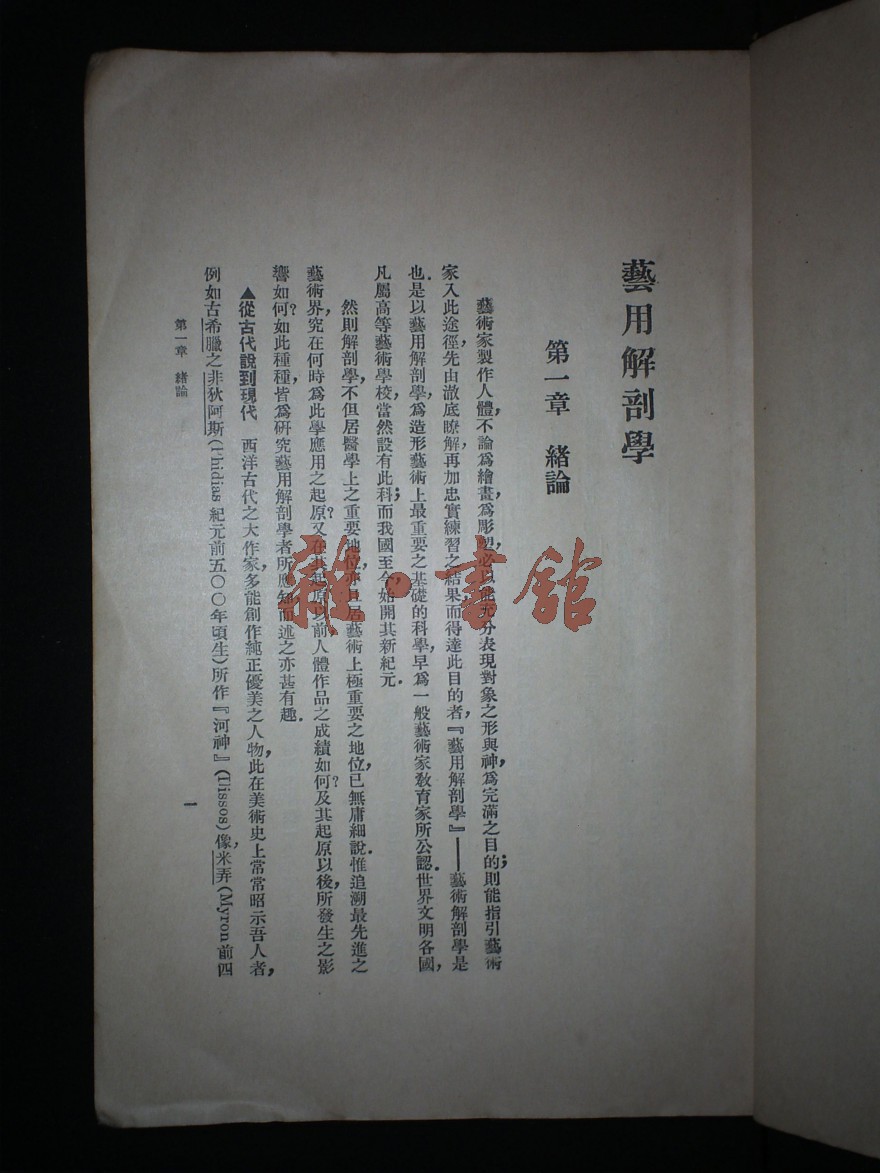 藝用解剖學
第一章　緒論
藝術家製作人體，不論爲繪畫，爲彫塑，必以能充分表現對象之形與神，爲完滿之目的；則能指引藝術
家入此途徑，先由澈底瞭解，再加忠實練習之結果而得達此目的者，『藝用解剖學』——藝術解剖學是
也．是以藝用解剖學，爲造形藝術上最重要之基礎的科學，早爲一般藝術家教育家所公認．世界文明各國，
凡屬高等藝術學校，當然設有此科；而我國至今，始開其新紀元．
然則解剖學，不但居醫學上之重要地位，亦且居藝術上極重要之地位，已無庸細說．惟追溯最先進之
藝術界，究在何時爲此學應用之起原？又在其起原以前人體作品之成績如何？及其起原以後，所發生之影
響如何？如此種種，皆爲研究藝用解剖學者所應知，而述之亦甚有趣．
▲從古代說到現代　西洋古代之大作家，多能創作純正優美之人物，此在美術史上常常昭示吾人者，
例如古希臘之非狄阿斯(Phidias 紀元前五〇〇年頃生)所作『河神』(Ilissos)像，米弄(Myron 前四
第一章　緒論
一
雜·書館